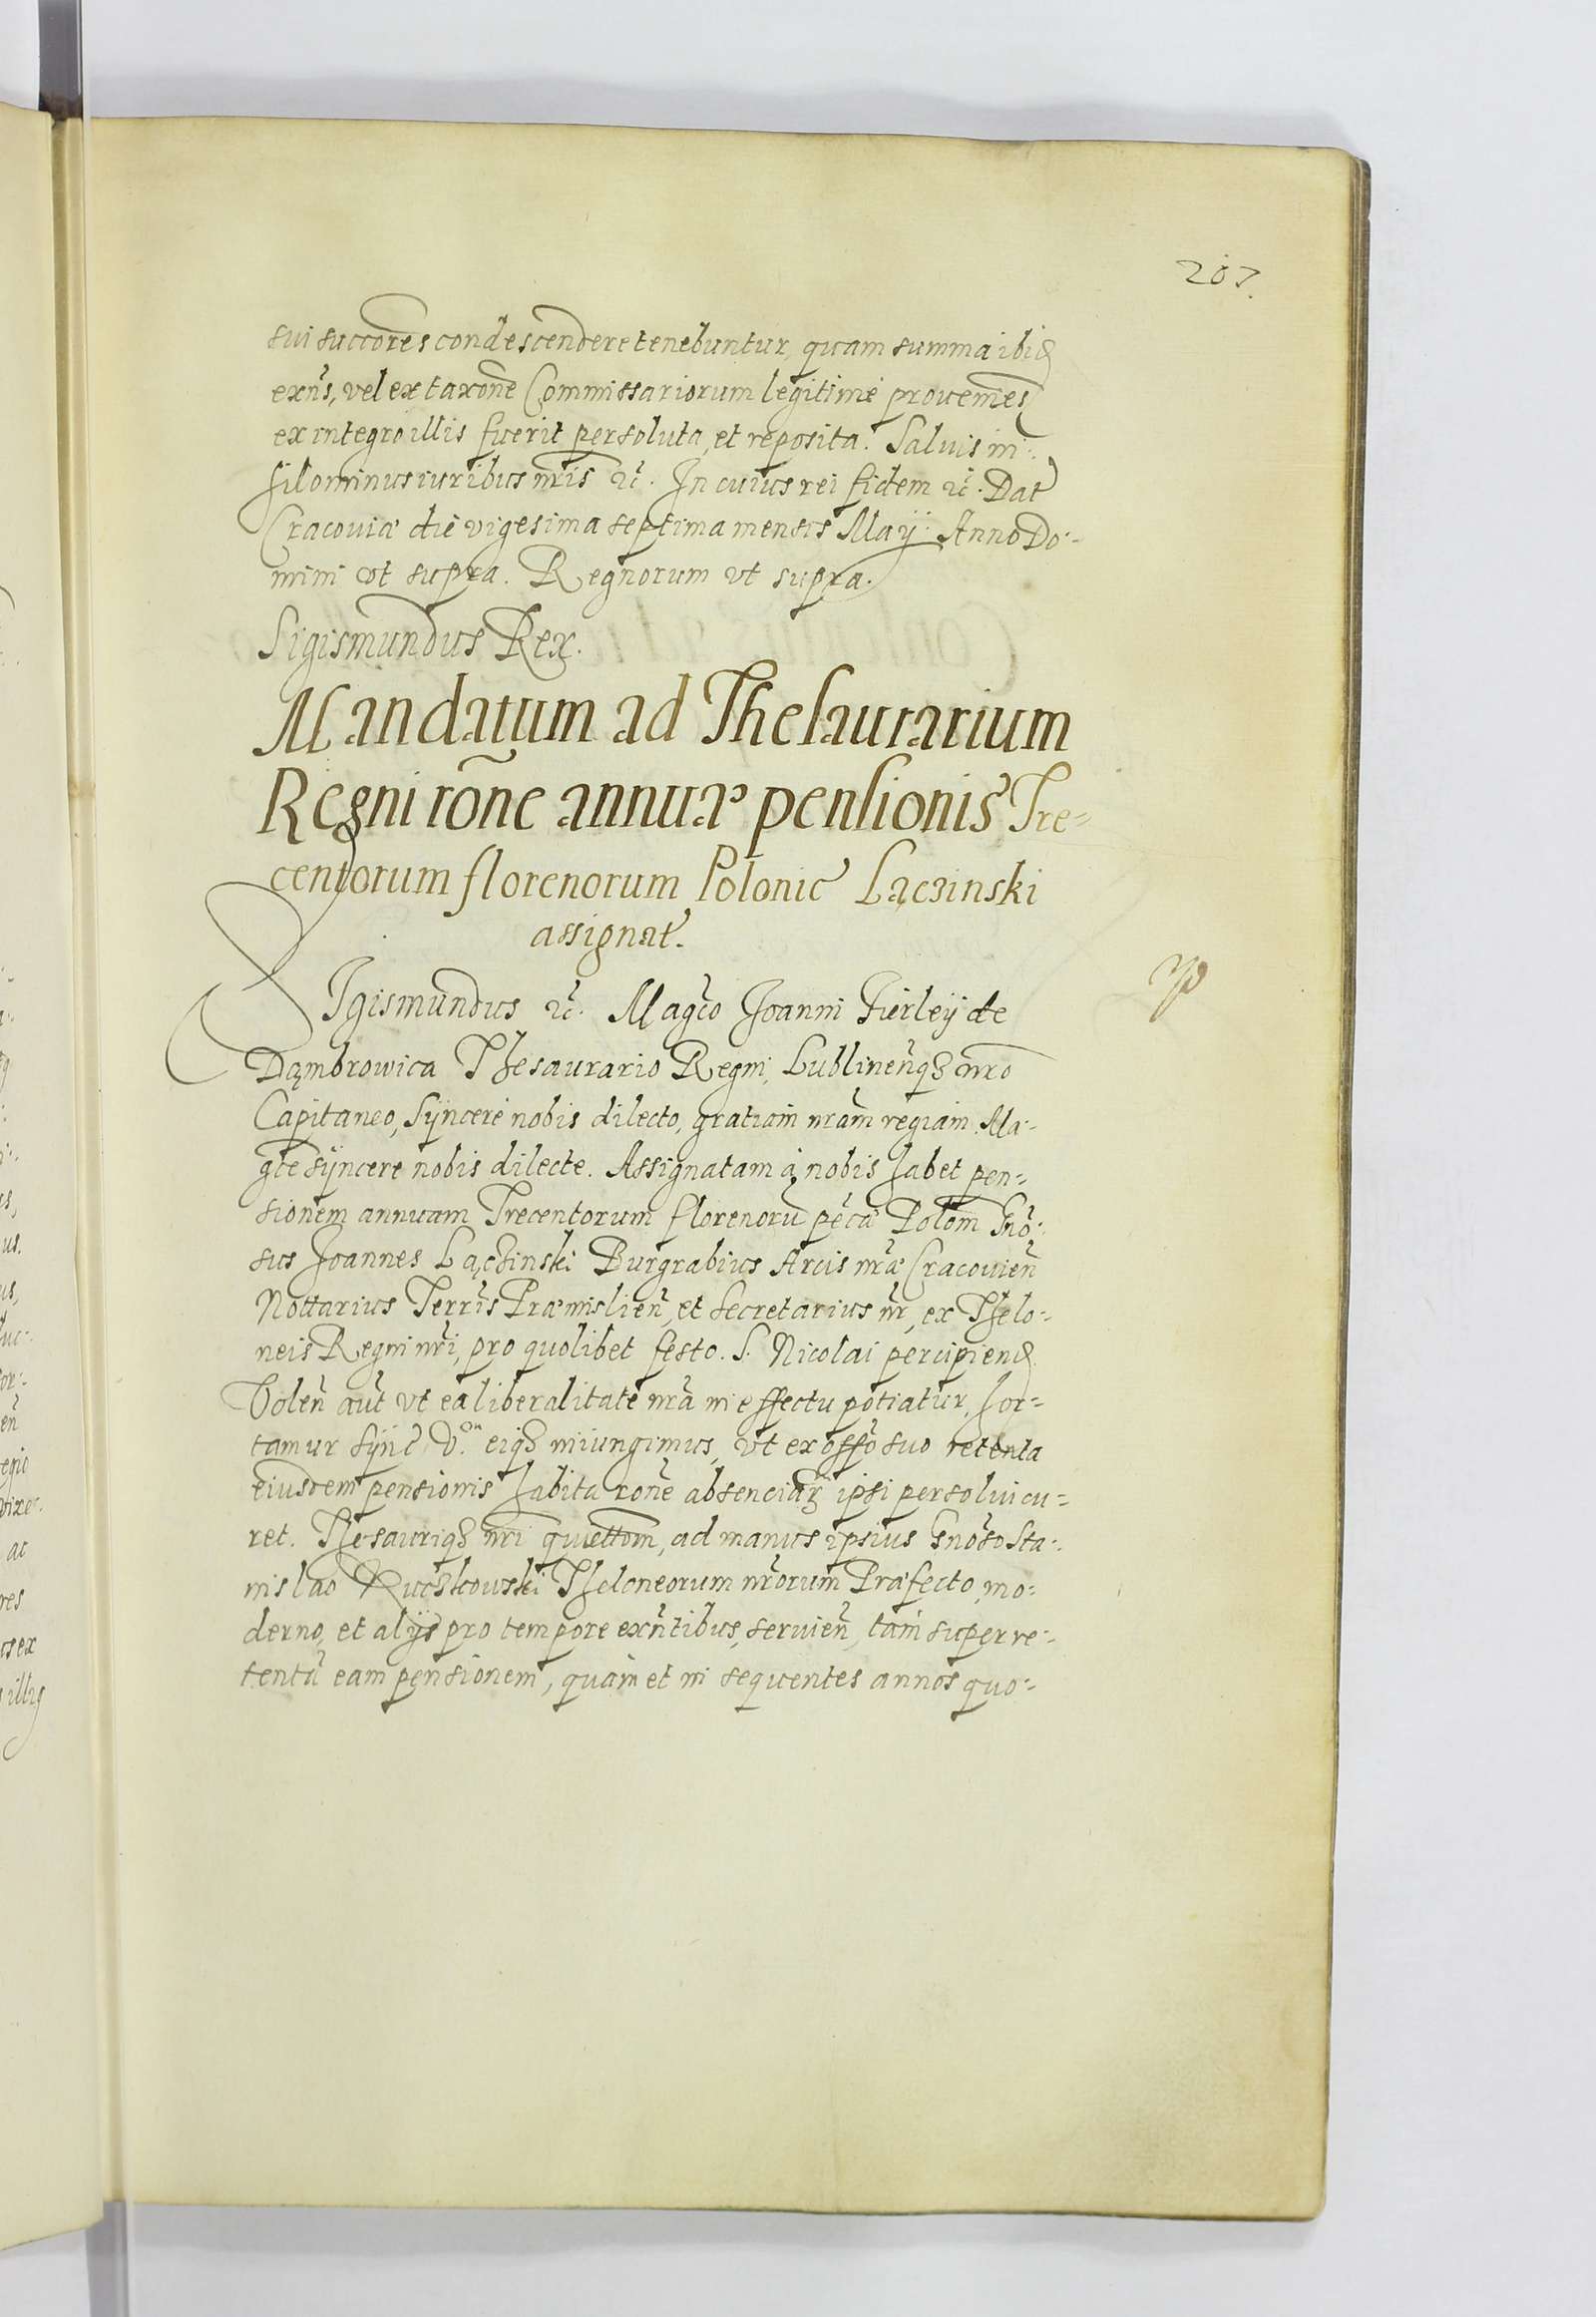 207.
sui succores condescendere tenebuntur, quam summa ibid
exn̄s, vel ex taxōne Commissariorum legitimè proueniens
ex integro illis fuerit persoluta, et reposita. Saluis ni-
hilominus iuribus nr̄is &c. In cuius rei fidem &c. Dat
Cracouiæ die vigesima septima mensis Maÿ. Anno Do-
mini vt supra. Regnorum vt supra.
Sigismundus Rex.
Mandatum ad Thesaurarium
Regni rōne annuæ pensionis Tre-
centorum florenorum Polonic Łączinski
assignat.
SIgismundus &c. Magco Joanni Firleÿ de
Dąmbrowica Thesaurario Regni, Lublinen̄q3 nr̄o
Capitaneo, sÿncerè nobis dilecto, gratiam nr̄am regiam. Ma-
gce sÿncere nobis dilecte. Assignatam à nobis habet pen-
sionem annuam Trecentorum florenorū pecā Polōm Gnō-
sus Joannes Łączinski Burgrabius Arcis nr̄æ Cracouien̄
Nottarius Terrīs Præmislien̄, et secretarius nr̄, ex Thelo-
neis Regni nr̄i, pro quolibet festo. S. Nicolai percipiend
Volen̄ aūt vt ea liberalitate nr̄a in effectu potiatur, hor-
tamur sÿnc̄ V. eiq3 iniungimus, vt ex offō suo retenta
eiusdem pensionis habita rōne absenciar̄ ipsi persolui cu-
ret. Thesauriq3 nr̄i quiettom, ad manus ipsius Gnōso Sta-
nislao Ruczkowski Theloneorum nr̄orum Præfecto, mo-
derno, et alÿs pro tempore exn̄tibus, seruien̄, tam super re-
tentā eam pensionem, quàm et in sequentes annos quo-